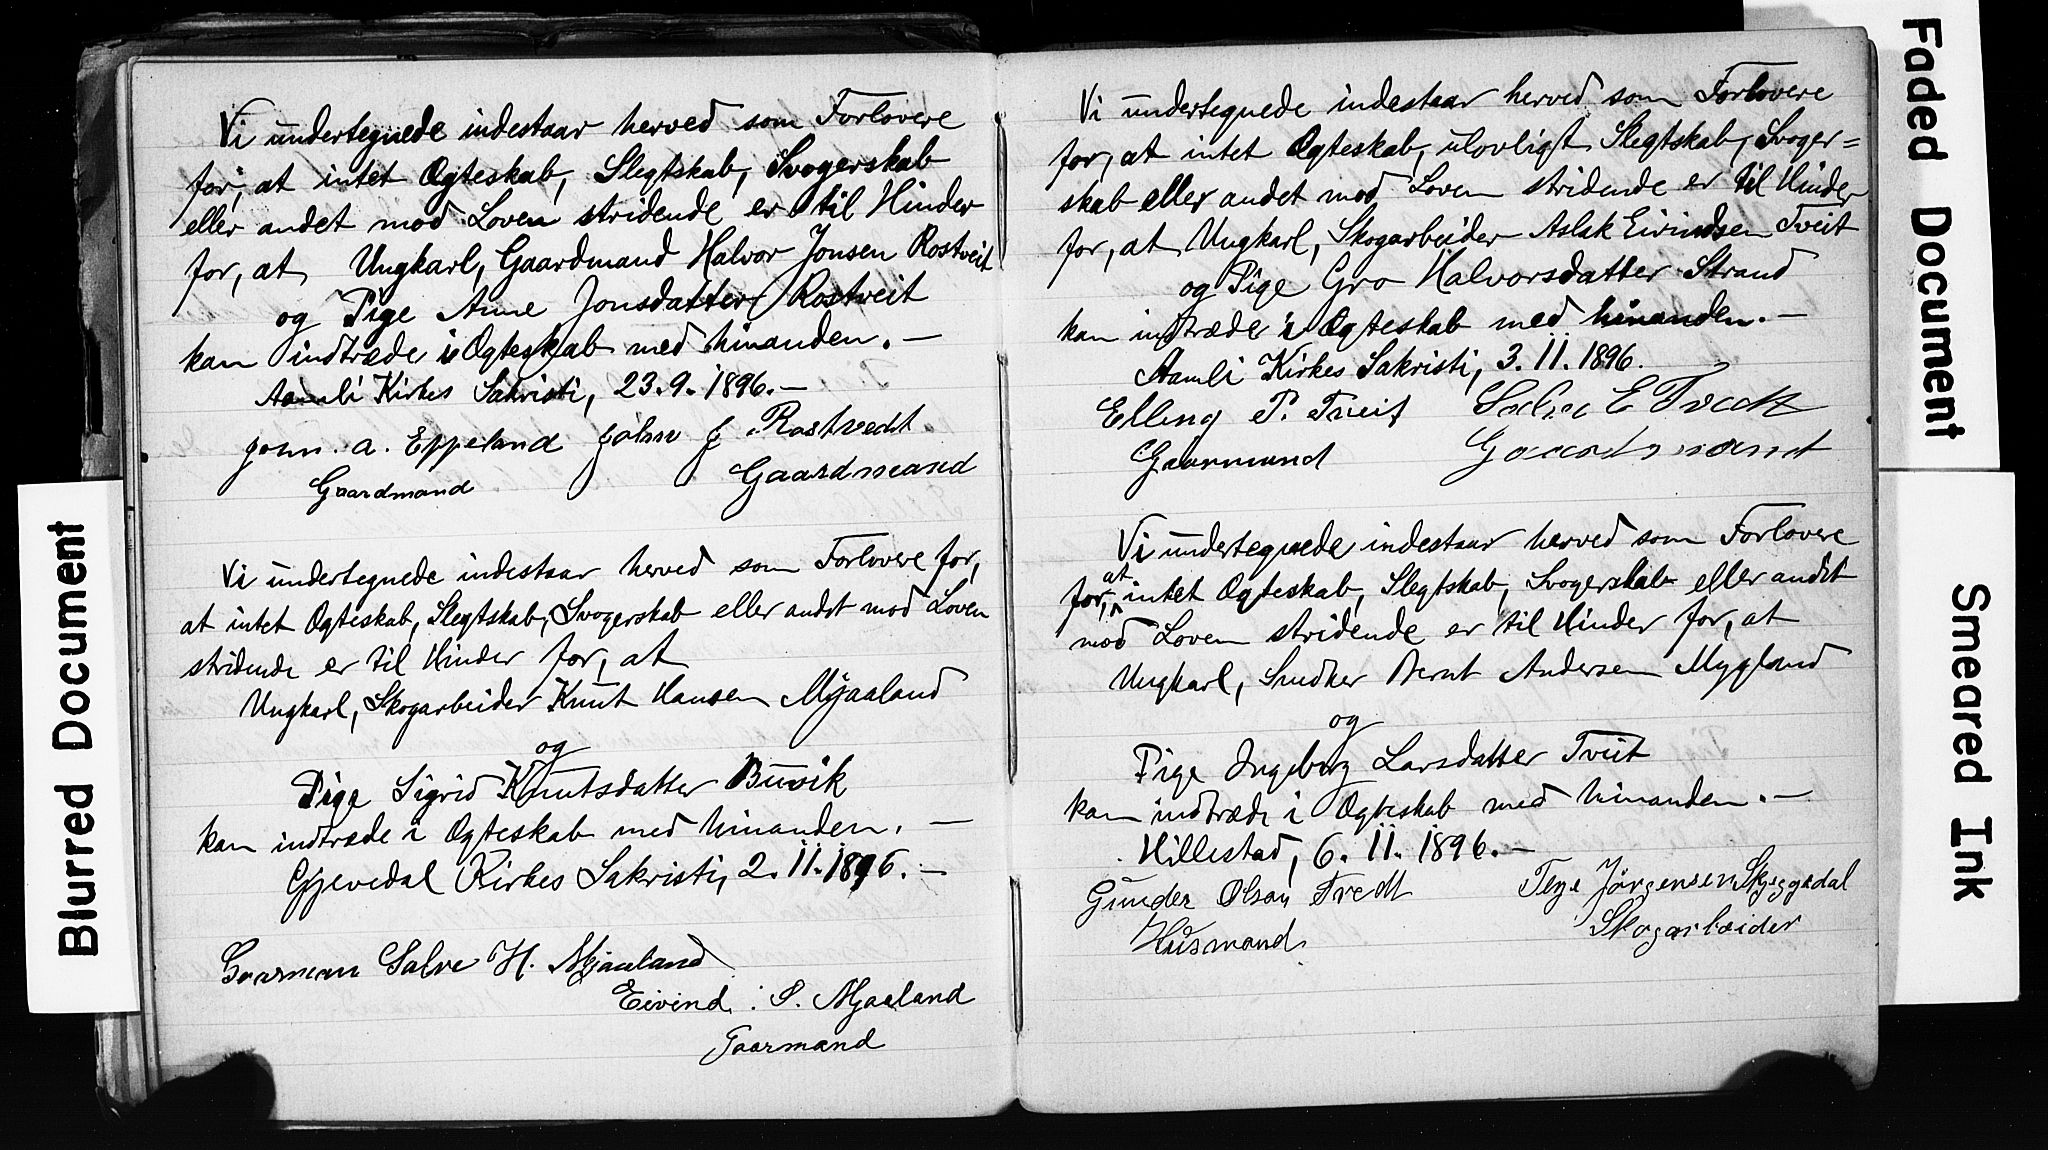 Vi undertegnede indestaar herved som Forlovere
for, at intet Ogteskab, Slegtskab, Svogerskab
eller andet mod Loven stridende er til Hinder
for, at Ungkarl, Gaardmand Halvor Jonsen Rostveit
og Pige Anne Jonsdatter Rostveit
kan indtræde i Ogteskab med hinanden. —
Aamli Kirkes Sakristi, 23.9.1896. —
John. A. Eppeland John J. Rostvedt
Gaardmand Gaardmand
Vi undertegnede indestaar herved som Forlovere for,
at intet Ogteskab, Slegtskab, Svogerskab eller andet mod Loven
stridende er til Hinder for, at
Ungkarl, Skogarbeider Knut Hansen Mjaaland
og
Pige Sigrid Knutsdatter Buvik
kan indtræde i Ogteskab med hinanden. —
Gjevedal Kirkes Sakristi, 2.11.1896. —
Gaarman Salve H. Mjaaland
Eivind. S. Mjaaland
Gaarmand
Vi undertegnede indestaar herved som Forlovere
for, at intet Ogteskab, ulovligt Slegtskab, Svoger=
skab eller andet mod Loven stridende er til Hinder
for, at Ungkarl, Skogarbeider Aslak Eivindsen Tveit
og Pige Gro Halvorsdatter Strand
kan indtræde i Ogteskab med hinanden. —
Aamli Kirkes Sakristi, 3.11.1896.
Elling P. Tveit E Tvedt
Gaarmand Gaardmand
Vi undertegnede indestaar herved som Forlovere
for, at intet Ogteskab, Slegtskab, Svogerskab eller andet
mod Loven stridende er til Hinder for, at
Ungkarl, Snedker Bernt Andersen Mygland
og
Pige Ingeborg Larsdatter Tveit
kan indtræde i Ogteskab med hinanden. —
Hillestad, 6.11.1896. —
Gunder Olsen Tvedt Terje Jørgensen Skjeggedal
Husmand. Skogarbeider
Blurred Document
Faded Document
Smeared Ink